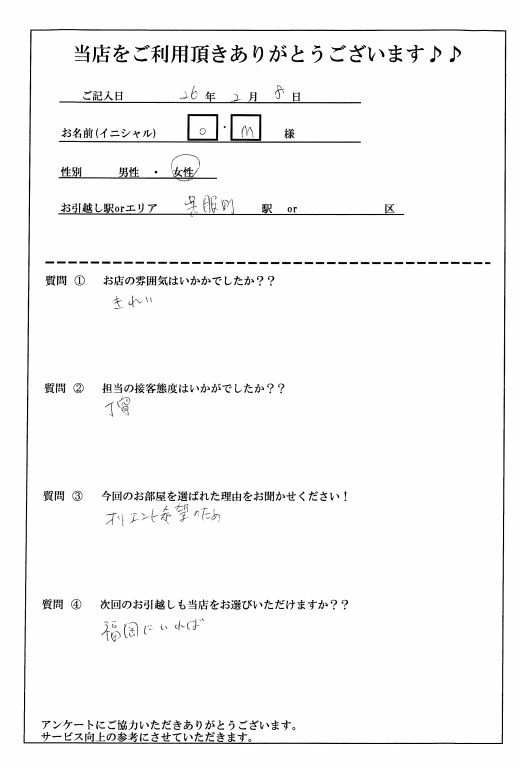 当店をご利用頂きありがとうございます♪♪
ご記入日 26年 2月 8日
お名前(イニシャル) O・M 様
性別 男性 ・ 女性
お引越し駅orエリア 呉服町 駅 or 区
質問 ① お店の雰囲気はいかかでしたか？？
きれい
質問 ② 担当の接客態度はいかがでしたか？？
丁寧
質問 ③ 今回のお部屋を選ばれた理由をお聞かせください！
オリエント希望のため
質問 ④ 次回のお引越しも当店をお選びいただけますか？？
福岡にいれば
アンケートにご協力いただきありがとうございます。
サービス向上の参考にさせていただきます。